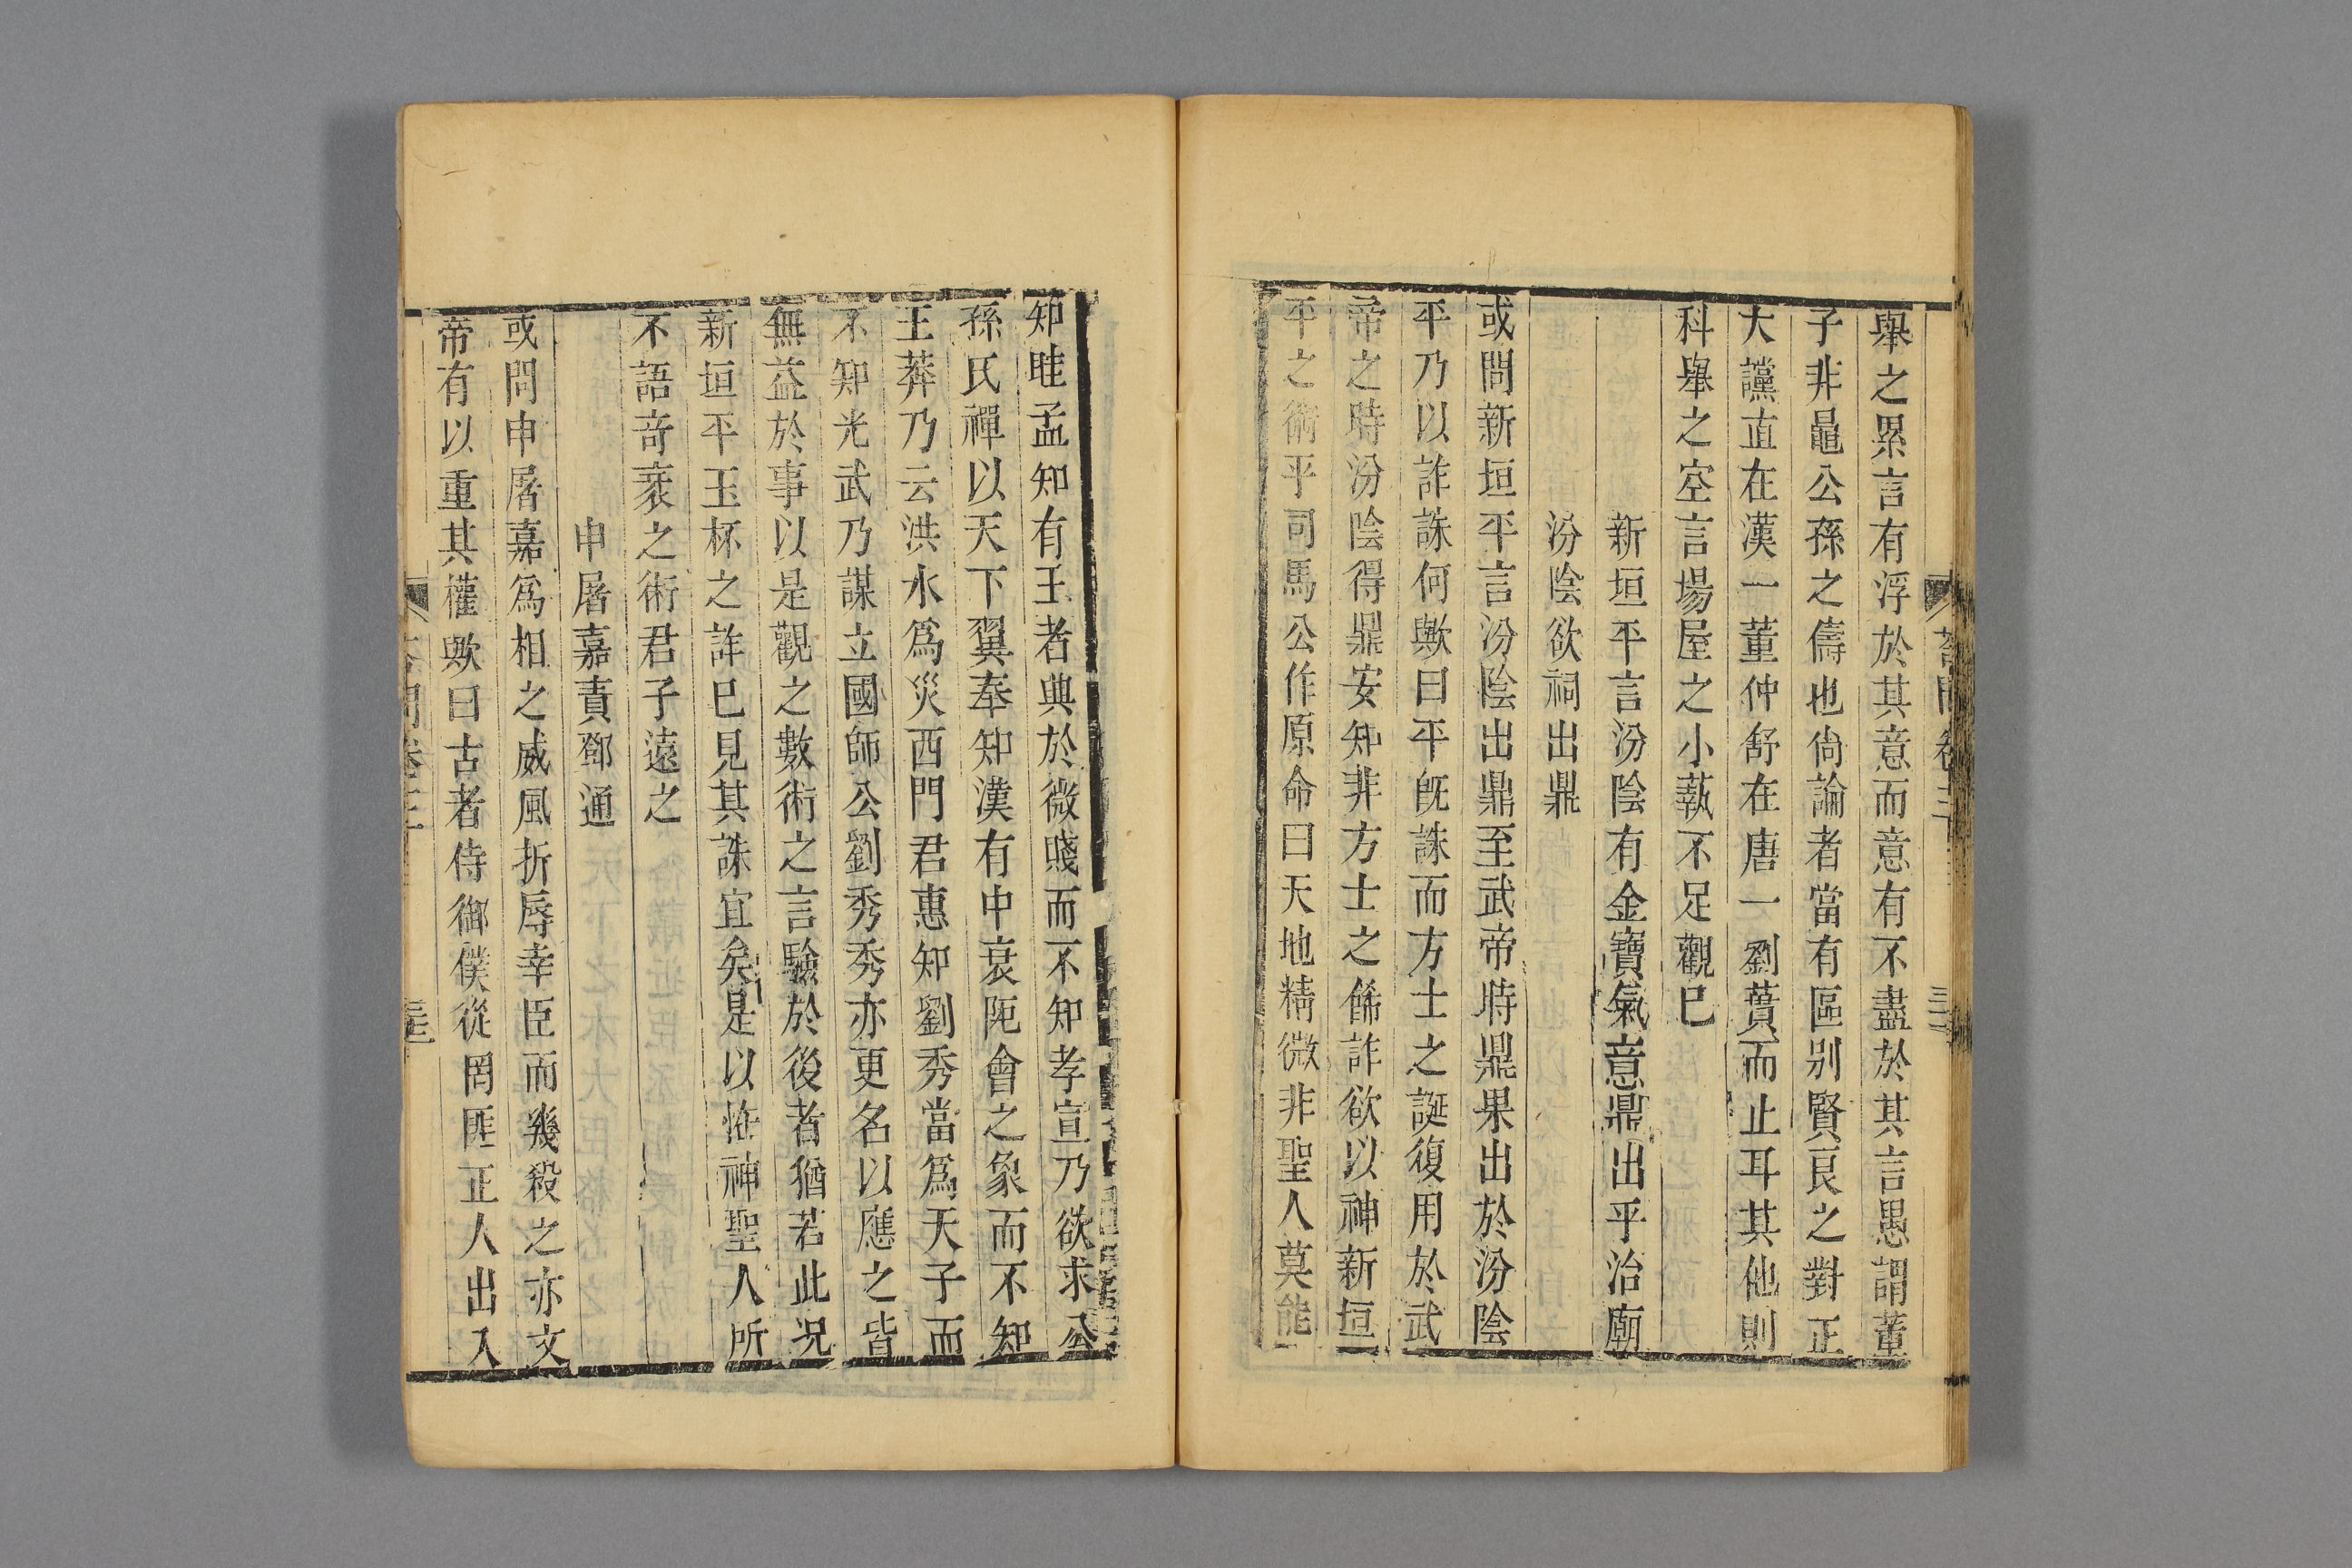 舉之累言有浮於其意而意有不盡於其言愚謂董
子非鼂公孫之儔也尙論者當有區别賢良之對正
大讜直在漢一董仲舒在唐一劉蕡而止耳其他則
科舉之空言場屋之小蓺不足觀已
新垣平言汾陰有金寶氣意鼎出乎治廟
汾陰欲祠出鼎
或問新垣平言汾陰出鼎至武帝時鼎果出於汾陰
平乃以詐誅何歟曰平旣誅而方士之誕復用於武
帝之時汾陰得鼎安知非方士之餙詐欲以神新垣
平之術乎司馬公作原命曰天地精微非聖人莫能
知眭孟知有王者興於微賤而不知孝宣乃欲求公
孫氏禪以天下翼奉知漢有中衰阨會之象而不知
王莽乃云洪水爲災西門君惠知劉秀當爲天子而
不知光武乃謀立國師公劉秀秀亦更名以應之皆
無益於事以是觀之數術之言驗於後者猶若此况
新垣平玉杯之詐已見其誅宜矣是以恠神聖人所
不語奇衺之術君子遠之
申屠嘉責鄧通
或問申屠嘉爲相之威風折辱幸臣而幾殺之亦文
帝有以重其權歟曰古者侍御僕從罔匪正人出入